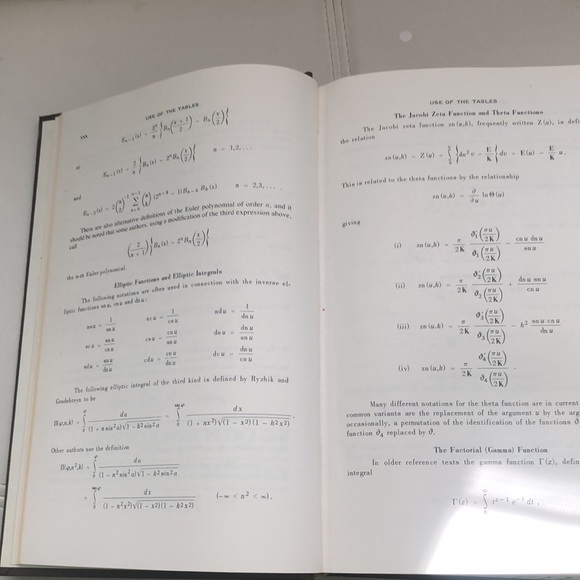 xxx
USE OF THE TABLES
E_{n-1}(x) = \frac{2^n}{n} \left\{ B_n\left(\frac{x+1}{2}\right) - B_n\left(\frac{x}{2}\right) \right\}
or
E_{n-1}(x) = \frac{2}{n} \left\{ B_n(x) - 2^n B_n\left(\frac{x}{2}\right) \right\} n = 1,2,...
and
E_{n-2}(x) = 2 \binom{n}{2}^{-1} \sum_{k=0}^{n-2} \binom{n}{k} (2^{n-k} - 1) B_{n-k} B_k(x) n = 2,3,....
These are also alternative definitions of the Euler polynomial of order n, and it
should be noted that some authors, using a modification of the third expression above,
call
\left(\frac{2}{n+1}\right) \left\{ B_n(x) - 2^n B_n\left(\frac{x}{2}\right) \right\}
the n-th Euler polynomial.
Elliptic Functions and Elliptic Integrals
The following notations are often used in connection with the inverse el-
liptic functions sn u, cn u and dn u:
ns u = \frac{1}{sn u} nc u = \frac{1}{cn u} nd u = \frac{1}{dn u}
sc u = \frac{sn u}{cn u} cs u = \frac{cn u}{sn u} ds u = \frac{dn u}{sn u}
sd u = \frac{sn u}{dn u} cd u = \frac{cn u}{dn u} dc u = \frac{dn u}{cn u}
The following elliptic integral of the third kind is defined by Ryzhik and
Gradshteyn to be
Other authors use the definition
(-∞ < n² < ∞).
USE OF THE TABLES
The Jacobi Zeta Function and Theta Functions
The Jacobi zeta function zn(u,k), frequently written Z(u), is defi
the relation
zn(u,k) = Z(u) = \int_0^u \left\{ dn^2 v - \frac{E}{K} \right\} dv = E(u) - \frac{E}{K} u.
This is related to the theta functions by the relationship
zn(u,k) = \frac{∂}{∂u} ln Θ(u)
giving
(i) zn(u,k) = \frac{π}{2K} \frac{ϑ_1'\left(\frac{πu}{2K}\right)}{ϑ_1\left(\frac{πu}{2K}\right)} - \frac{cn u dn u}{sn u}
(ii) zn(u,k) = \frac{π}{2K} \frac{ϑ_2'\left(\frac{πu}{2K}\right)}{ϑ_2\left(\frac{πu}{2K}\right)} + \frac{dn u sn u}{cn u}
(iii) zn(u,k) = \frac{π}{2K} \frac{ϑ_3'\left(\frac{πu}{2K}\right)}{ϑ_3\left(\frac{πu}{2K}\right)} - k^2 \frac{sn u cn u}{dn u}
(iv) zn(u,k) = \frac{π}{2K} \frac{ϑ_4'\left(\frac{πu}{2K}\right)}{ϑ_4\left(\frac{πu}{2K}\right)}.
Many different notations for the theta function are in current
common variants are the replacement of the argument u by the arg
occasionally, a permutation of the identification of the functions ϑ
function ϑ₄ replaced by ϑ.
The Factorial (Gamma) Function
In older reference texts the gamma function Γ(z), defin
integral
Γ(z) = \int_0^∞ t^{z-1} e^{-t} dt,